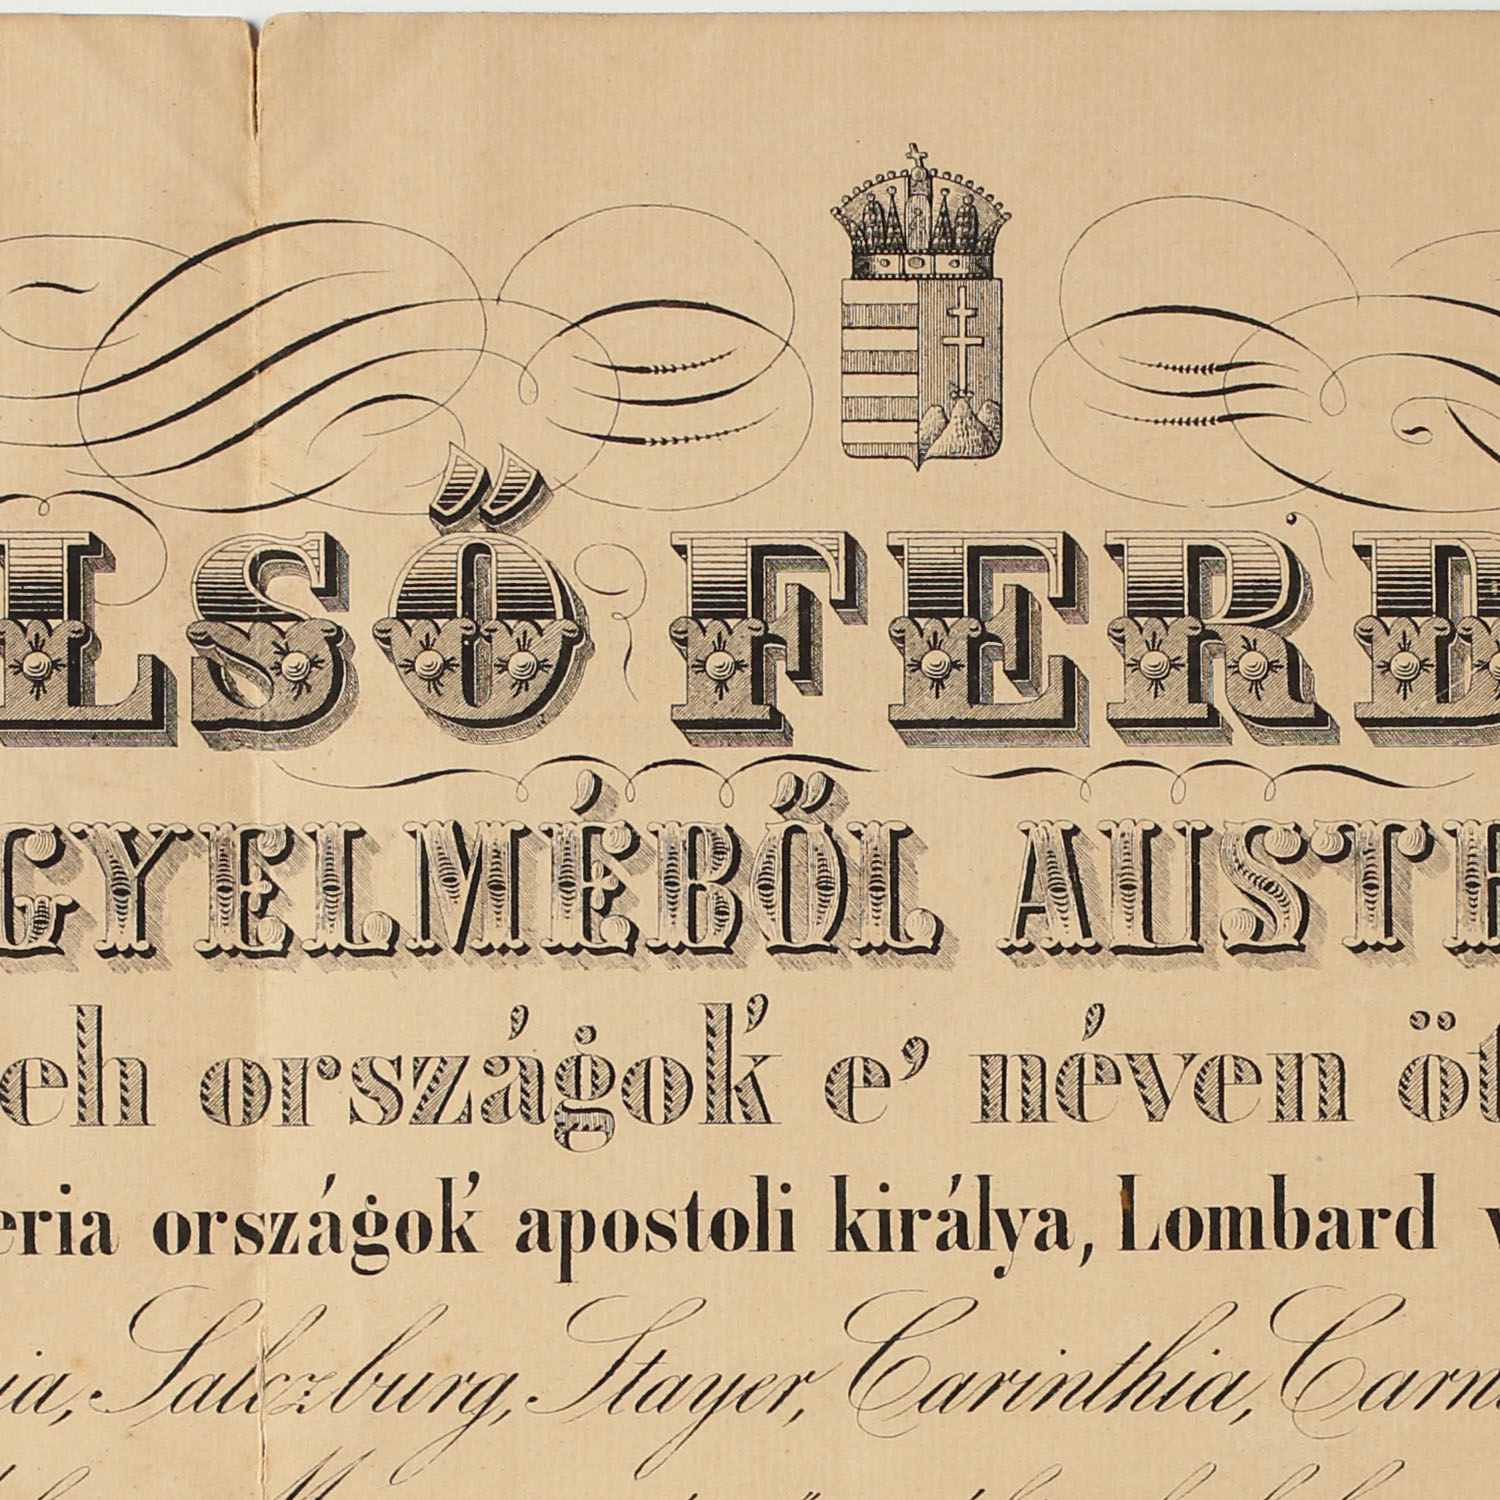 LSŐ FERD
GYELMÉBŐL AUSTR
eh országok' e' néven öt
eria országok' apostoli királya, Lombard v
ia, Salczburg, Stayer, Carinthia, Carn